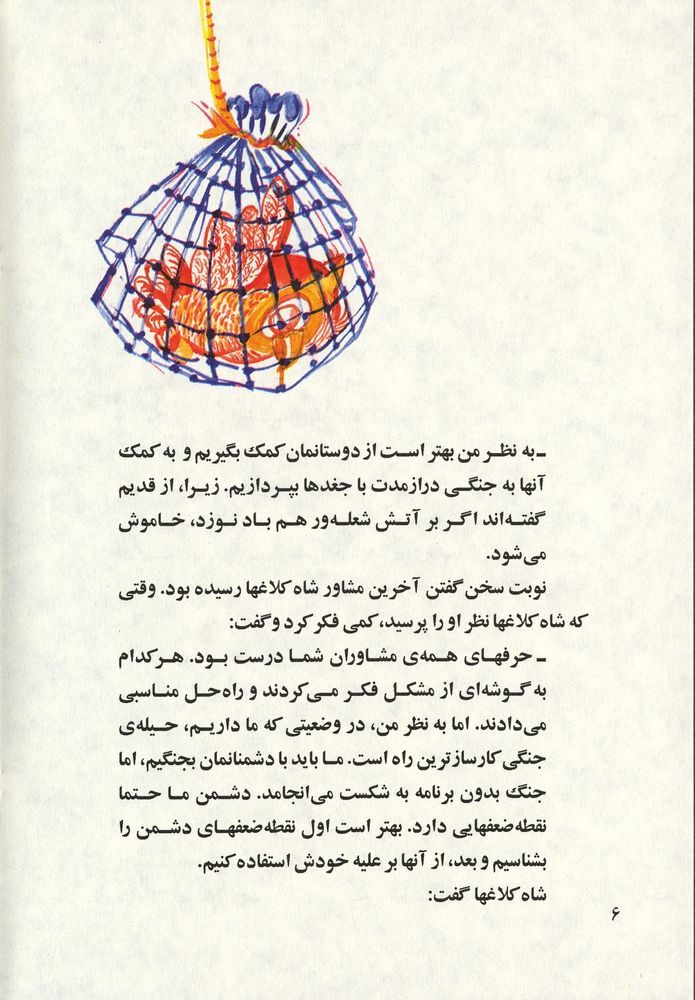 ـ به نظر من بهتر است از دوستانمان کمک بگیریم و به کمک
آنها به جنگی درازمدت با جغدها بپردازیم. زیرا، از قدیم
گفته‌اند اگر بر آتش شعله‌ور هم باد نوزد، خاموش
می‌شود.
نوبت سخن گفتن آخرین مشاور شاه کلاغها رسیده بود. وقتی
که شاه کلاغها نظر او را پرسید، کمی فکر کرد و گفت:
ـ حرفهای همه‌ی مشاوران شما درست بود. هرکدام
به گوشه‌ای از مشکل فکر می‌کردند و راه‌حل مناسبی
می‌دادند. اما به نظر من، در وضعیتی که ما داریم، حیله‌ی
جنگی کارسازترین راه است. ما باید با دشمنانمان بجنگیم، اما
جنگ بدون برنامه به شکست می‌انجامد. دشمن ما حتما
نقطه‌ضعفهایی دارد. بهتر است اول نقطه‌ضعفهای دشمن را
بشناسیم و بعد، از آنها بر علیه خودش استفاده کنیم.
شاه کلاغها گفت:
۶